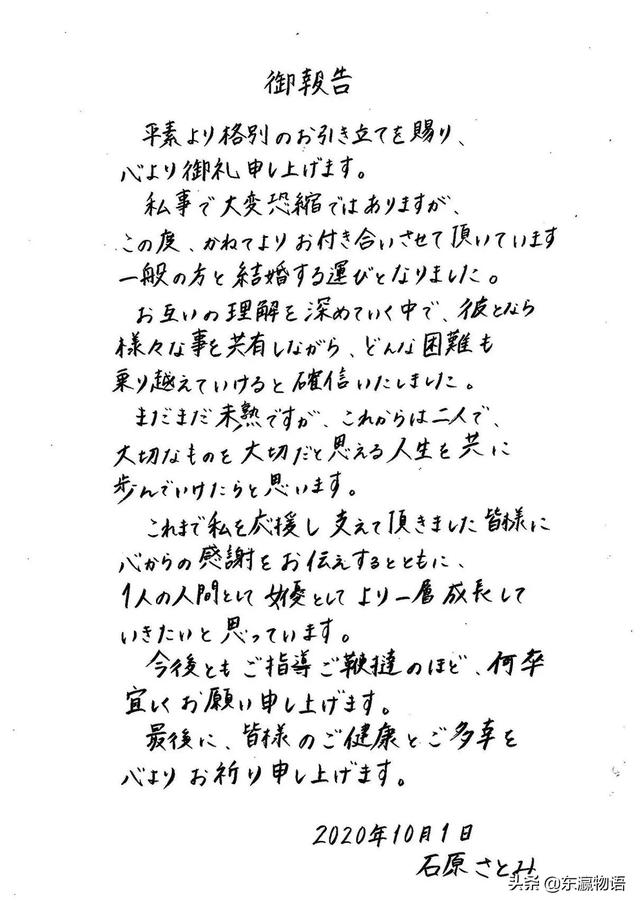 御報告
平素より格別のお引き立てを賜り、
心より御礼申し上げます。
私事で大変恐縮ではありますが、
この度、かねてよりお付き合いさせて頂いています
一般の方と結婚する運びとなりました。
お互いの理解を深めていく中で、彼となら
様々な事を共有しながら、どんな困難も
乗り越えていけると確信いたしました。
まだまだ未熟ですが、これからは二人で、
大切なものを大切だと思える人生を共に
歩んでいけたらと思います。
これまで私を応援し支えて頂きました皆様に
心からの感謝をお伝えするとともに、
1人の人間として女優としてより一層成長して
いきたいと思っています。
今後ともご指導ご鞭撻のほど、何卒
宜しくお願い申し上げます。
最後に、皆様のご健康とご多幸を
心よりお祈り申し上げます。
2020年10月1日
石原さとみ
头条@东瀛物语